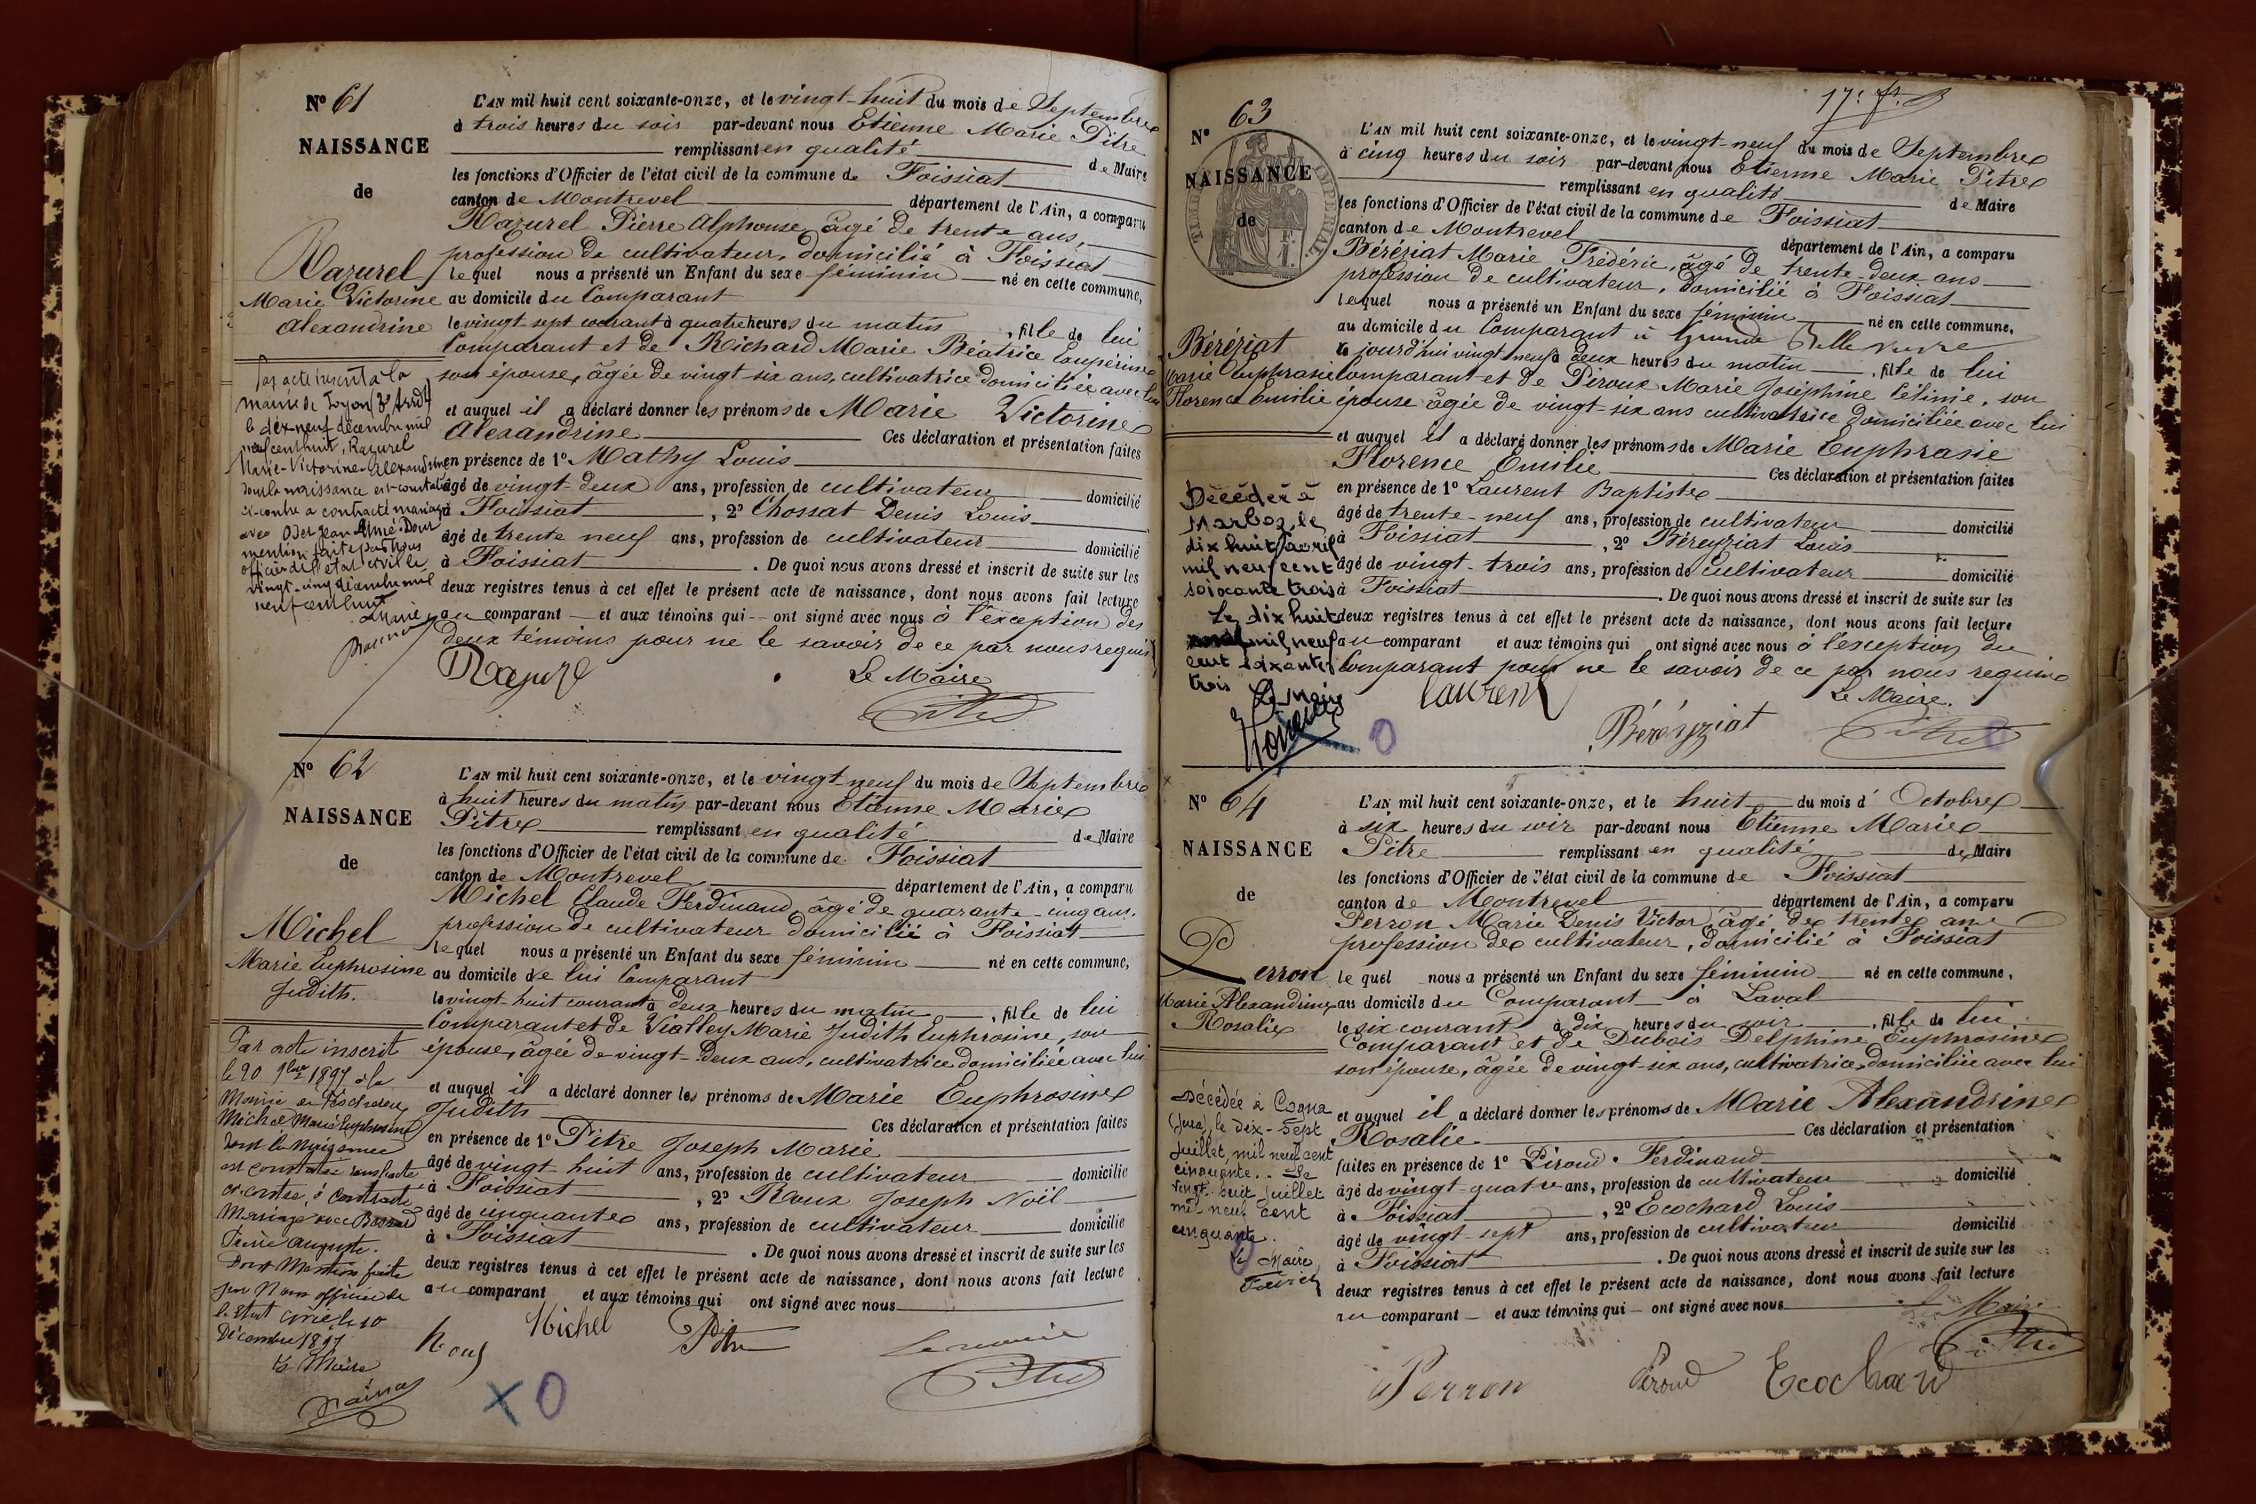 N° 61
NAISSANCE
de
Razurel
Marie Victorine
Alexandrine
L'AN mil huit cent soixante-onze, et le vingt-huit du mois de Septembre
à trois heures du soir par-devant nous Etienne Marie Pitre
remplissant en qualité de Maire
les fonctions d'Officier de l'état civil de la commune de Foissiat
canton de Montrevel département de l'Ain, a comparu
Razurel Pierre Alphonse, âgé de trente ans,
profession de cultivateur, domicilié à Foissiat
lequel nous a présenté un Enfant du sexe féminin né en cette commune,
au domicile du Comparant
le vingt-sept courant à quatre heures du matin, fille de lui
Comparant et de Richard Marie Béatrice Exupérine
son épouse, âgée de vingt six ans, cultivatrice domiciliée avec lui
et auquel il a déclaré donner les prénoms de Marie Victorine
Alexandrine Ces déclaration et présentation faites
en présence de 1° Mathy Louis
âgé de vingt-deux ans, profession de cultivateur domicilié
à Foissiat, 2° Chossat Denis Louis
âgé de trente neuf ans, profession de cultivateur domicilié
à Foissiat. De quoi nous avons dressé et inscrit de suite sur les
deux registres tenus à cet effet le présent acte de naissance, dont nous avons fait lecture
au comparant et aux témoins qui ont signé avec nous à l'exception des
deux témoins pour ne le savoir de ce par nous requis
Le Maire
Pitre
Par acte inscrit à la
mairie de Lyon (3e Arrdt)
le dix-neuf décembre mil
neuf cent huit, Razurel
Marie-Victorine-Alexandrine
dont la naissance est constatée
ci-contre a contracté mariage
avec Jean Aimé. Dont
mention faite par nous
officier de l'état civil le
vingt-cinq décembre mil
neuf cent huit
Le Maire
N° 62
NAISSANCE
de
Michel
Marie Euphrosine
Judith.
L'AN mil huit cent soixante-onze, et le vingt-neuf du mois de Septembre
à huit heures du matin par-devant nous Etienne Marie
Pitre remplissant en qualité de Maire
les fonctions d'Officier de l'état civil de la commune de Foissiat
canton de Montrevel département de l'Ain, a comparu
Michel Claude Ferdinand, âgé de quarante-cinq ans,
profession de cultivateur domicilié à Foissiat
lequel nous a présenté un Enfant du sexe féminin né en cette commune,
au domicile de lui Comparant
le vingt-huit courant à deux heures du matin, fille de lui
Comparant et de Vialley Marie Judith Euphrosine, son
épouse, âgée de vingt-deux ans, cultivatrice domiciliée avec lui
et auquel il a déclaré donner les prénoms de Marie Euphrosine
Judith Ces déclaration et présentation faites
en présence de 1° Pitre Joseph Marie
âgé de vingt-huit ans, profession de cultivateur domicilié
à Foissiat, 2° Roux Joseph Noël
âgé de cinquante ans, profession de cultivateur domicilié
à Foissiat. De quoi nous avons dressé et inscrit de suite sur les
deux registres tenus à cet effet le présent acte de naissance, dont nous avons fait lecture
au comparant et aux témoins qui ont signé avec nous
Roux Michel Pitre Le maire
Pitre
Par acte inscrit
le 20 9bre 1897 à la
Mairie de
Michel Marie Euphrosine
dont la naissance
est constatée dans l'acte
ci-contre, a contracté
Mariage avec
Pierre Auguste.
Dont Mention faite
par Nous officier de
l'Etat civil le 10
Décembre 1897
Le Maire
17e ft.
N° 63
NAISSANCE
de
TIMBRE IMPERIAL
Béréziat
Marie Euphrasie
Florence Emilie
L'AN mil huit cent soixante-onze, et le vingt-neuf du mois de Septembre
à cinq heures du soir par-devant nous Etienne Marie Pitre
remplissant en qualité de Maire
les fonctions d'Officier de l'état civil de la commune de Foissiat
canton de Montrevel département de l'Ain, a comparu
Béréziat Marie Frédéric, âgé de trente-deux ans
profession de cultivateur, domicilié à Foissiat
lequel nous a présenté un Enfant du sexe féminin né en cette commune,
au domicile du Comparant à Grande Belle vuvre
le jourd'hui vingt neuf à deux heures du matin, fille de lui
Comparant et de Piroux Marie Joséphine Célinie, son
épouse âgée de vingt-six ans cultivatrice domiciliée avec lui
et auquel il a déclaré donner les prénoms de Marie Euphrasie
Florence Emilie Ces déclaration et présentation faites
en présence de 1° Laurent Baptiste
âgé de trente-neuf ans, profession de cultivateur domicilié
à Foissiat, 2° Béreyziat Louis
âgé de vingt-trois ans, profession de cultivateur domicilié
à Foissiat. De quoi nous avons dressé et inscrit de suite sur les
deux registres tenus à cet effet le présent acte de naissance, dont nous avons fait lecture
au comparant et aux témoins qui ont signé avec nous à l'exception du
Comparant pour ne le savoir de ce par nous requis
Laurent Le Maire.
Béréyziat Pitre
Décédée à
Marboz, le
dix huit avril
mil neuf cent
soixante trois
Le dix huit
mil neuf
cent soixante
trois
Le Maire
N° 64
NAISSANCE
de
Perron
Marie Alexandrine
Rosalie
L'AN mil huit cent soixante-onze, et le huit du mois d'Octobre
à six heures du soir par-devant nous Etienne Marie
Pitre remplissant en qualité de Maire
les fonctions d'Officier de l'état civil de la commune de Foissiat
canton de Montrevel département de l'Ain, a comparu
Perron Marie Denis Victor, âgé de trente ans
profession de cultivateur, domicilié à Foissiat
lequel nous a présenté un Enfant du sexe féminin né en cette commune,
au domicile du Comparant à Laval
le six courant à dix heures du soir, fille de lui
Comparant et de Dubois Delphine Euphrosine
son épouse, âgée de vingt-six ans, cultivatrice, domiciliée avec lui
et auquel il a déclaré donner les prénoms de Marie Alexandrine
Rosalie Ces déclaration et présentation
faites en présence de 1° Piroud Ferdinand
âgé de vingt-quatre ans, profession de cultivateur domicilié
à Foissiat, 2° Ecochard Louis
âgé de vingt-sept ans, profession de cultivateur domicilié
à Foissiat. De quoi nous avons dressé et inscrit de suite sur les
deux registres tenus à cet effet le présent acte de naissance, dont nous avons fait lecture
au comparant et aux témoins qui ont signé avec nous
Le Maire
Perron Piroud Ecochard Pitre
Décédée à Cogna
(Jura), le dix-sept
Juillet, mil neuf cent
cinquante.. Le
vingt-huit Juillet
mil neuf cent
cinquante.
Le Maire,